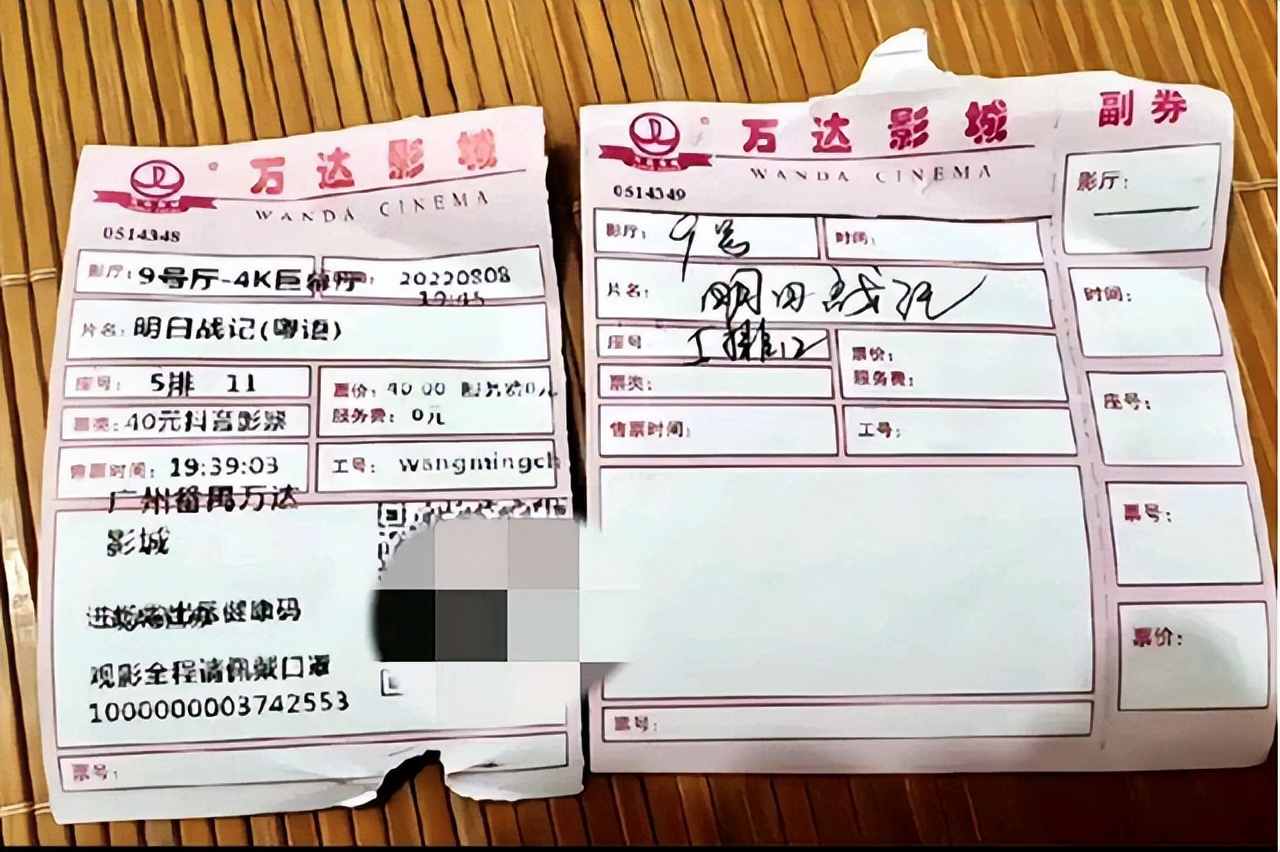 万达影城
WANDA CINEMA
0514348
影厅: 9号厅-4K巨幕厅 20220808
19:45
片名: 明日战记(粤语)
座号: 5排 11
票价: 40.00 服务费0元
票类: 40元抖音影票
服务费: 0元
售票时间: 19:39:03
工号: wangmingch
广州番禺万达
影城
进场需出示健康码
观影全程请佩戴口罩
1000000003742553
票号:
万达影城
WANDA CINEMA
0514349
影厅: 9号
时间:
片名: 明日战记
座号: 12
票价:
服务费:
票类:
售票时间:
工号:
票号:
副券
影厅:
时间:
座号:
票号:
票价: